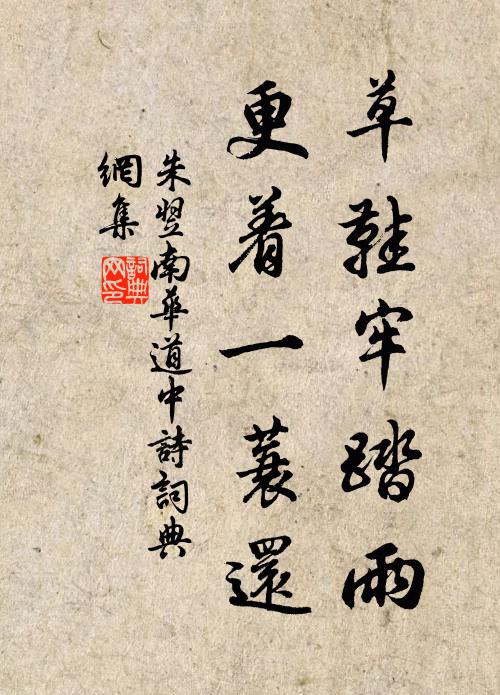 草鞋牢踏雨
更着一蓑還
朱翌南華道中詩詞典
網集
詞典网印